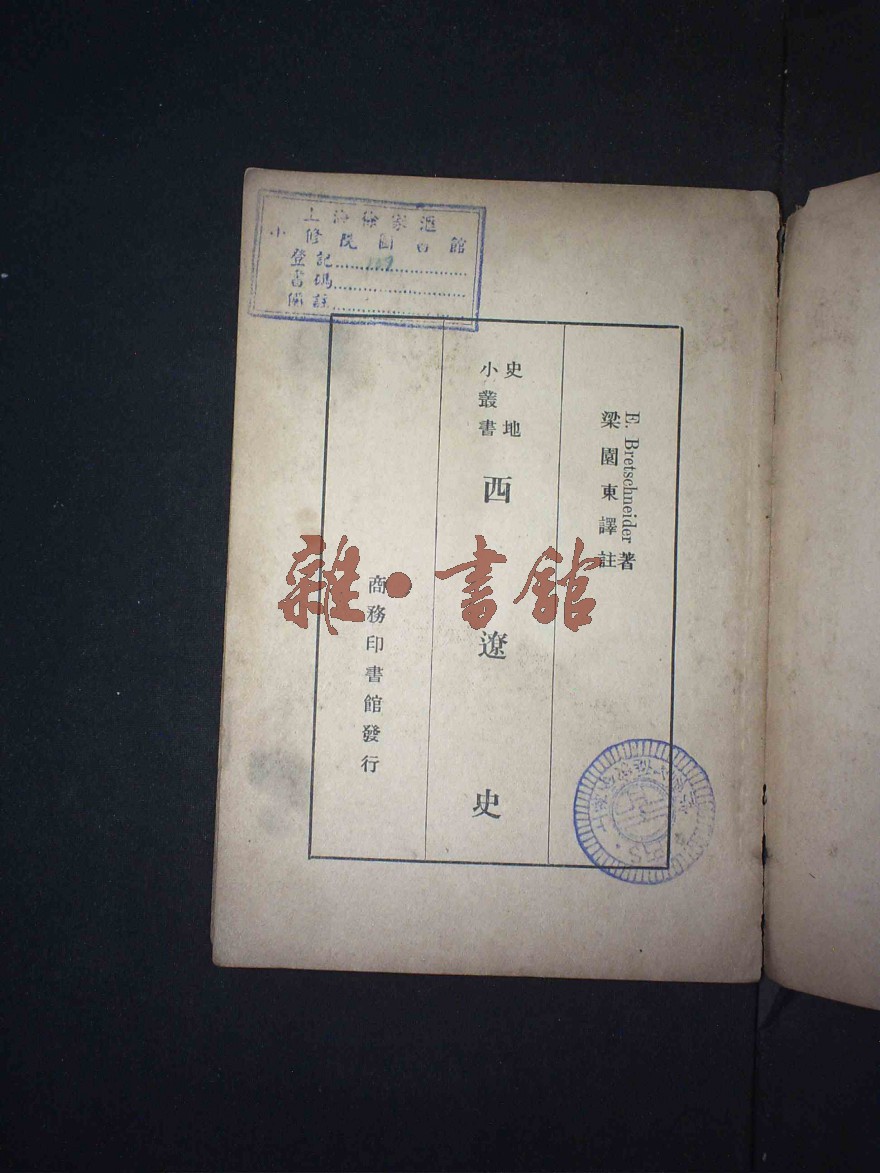 上海徐家匯
小修院圖書館
登記 169
書碼
備註
E. Bretschneider 著
梁園東譯註
史地
小叢書
西遼史
商務印書館發行
雜·書館